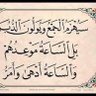 سَيُهْزَمُ الْجَمْعُ وَيُوَلُّونَ الدُّبُرَ
بَلِ السَّاعَةُ مَوْعِدُهُمْ
وَالسَّاعَةُ أَدْهَىٰ وَأَمَرُّ